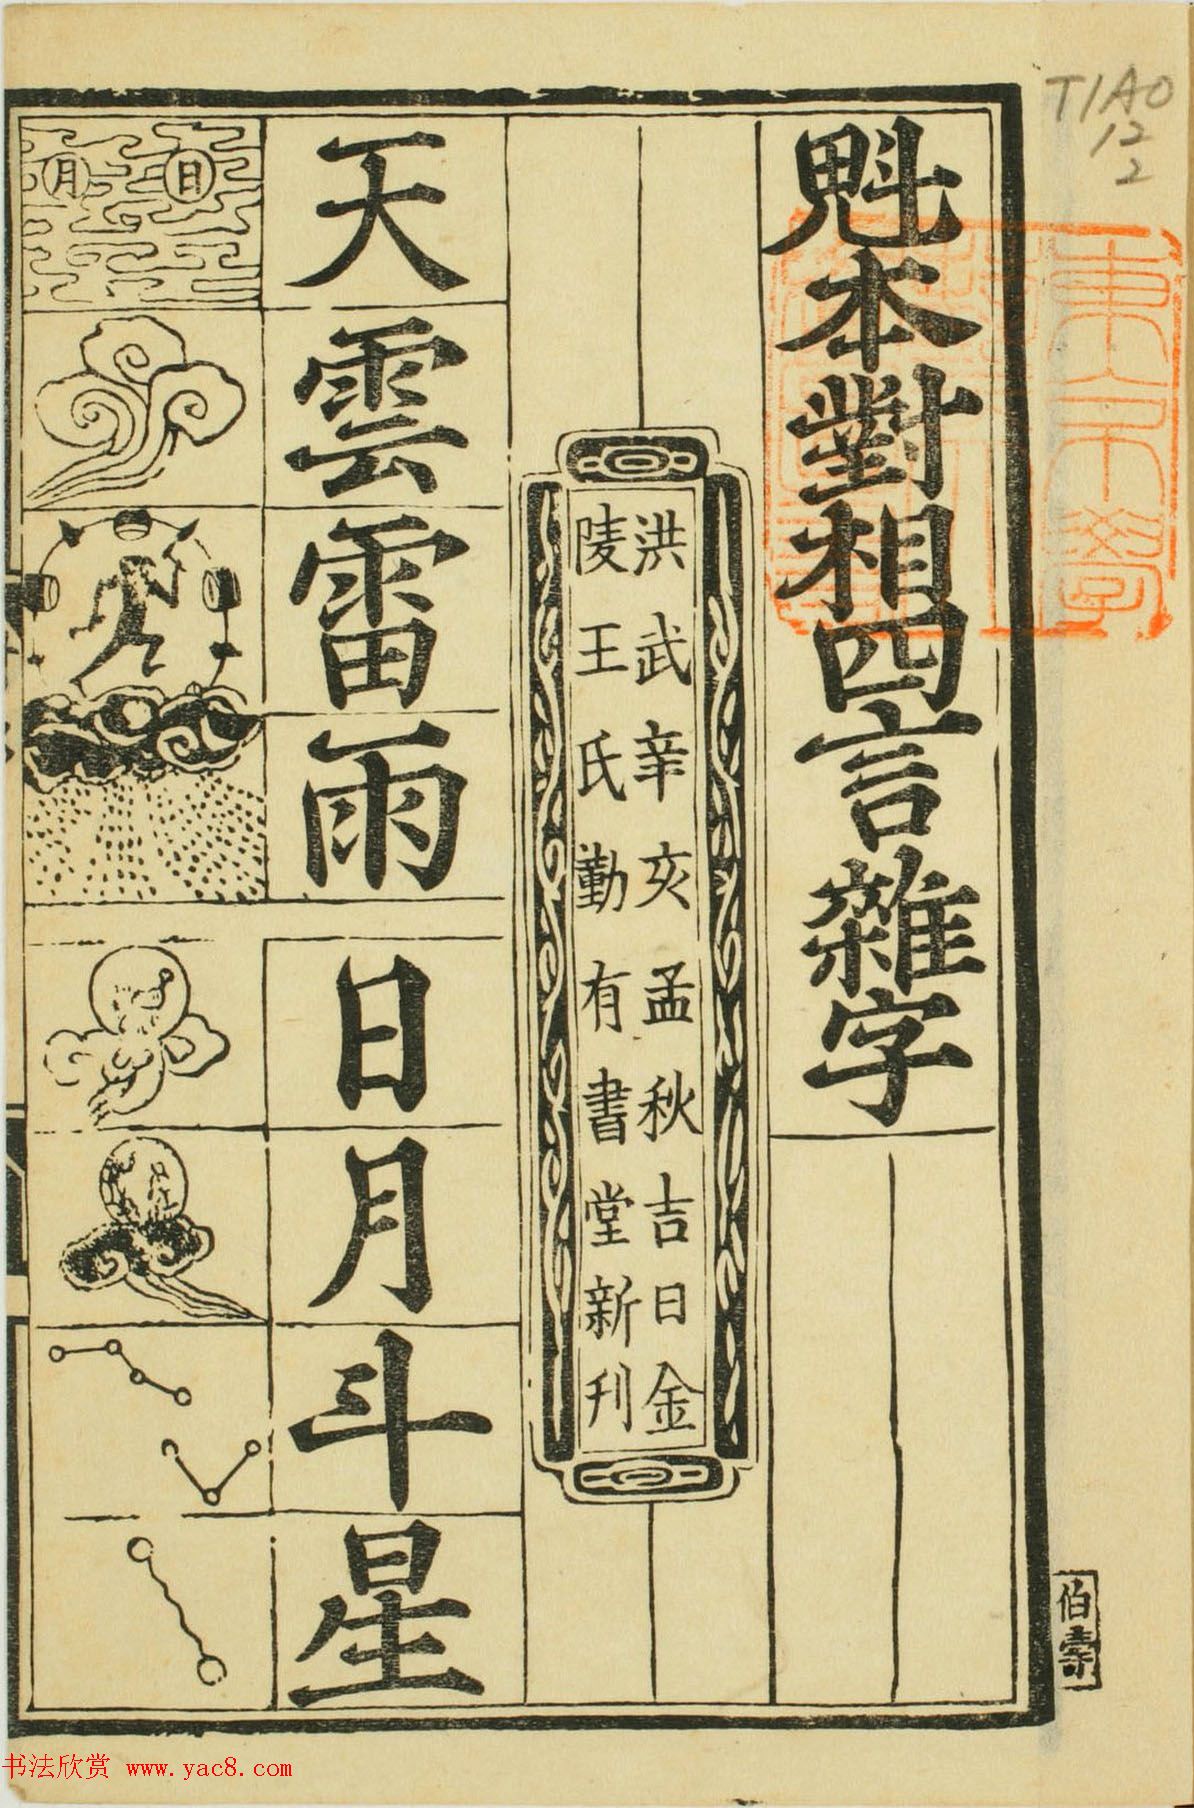 魁本對相四言雜字
洪武辛亥孟秋吉日金
陵王氏勤有書堂新刊
天雲雷雨
日月斗星
日
月
伯壽
T1A0
12
2
书法欣赏 www.yac8.com